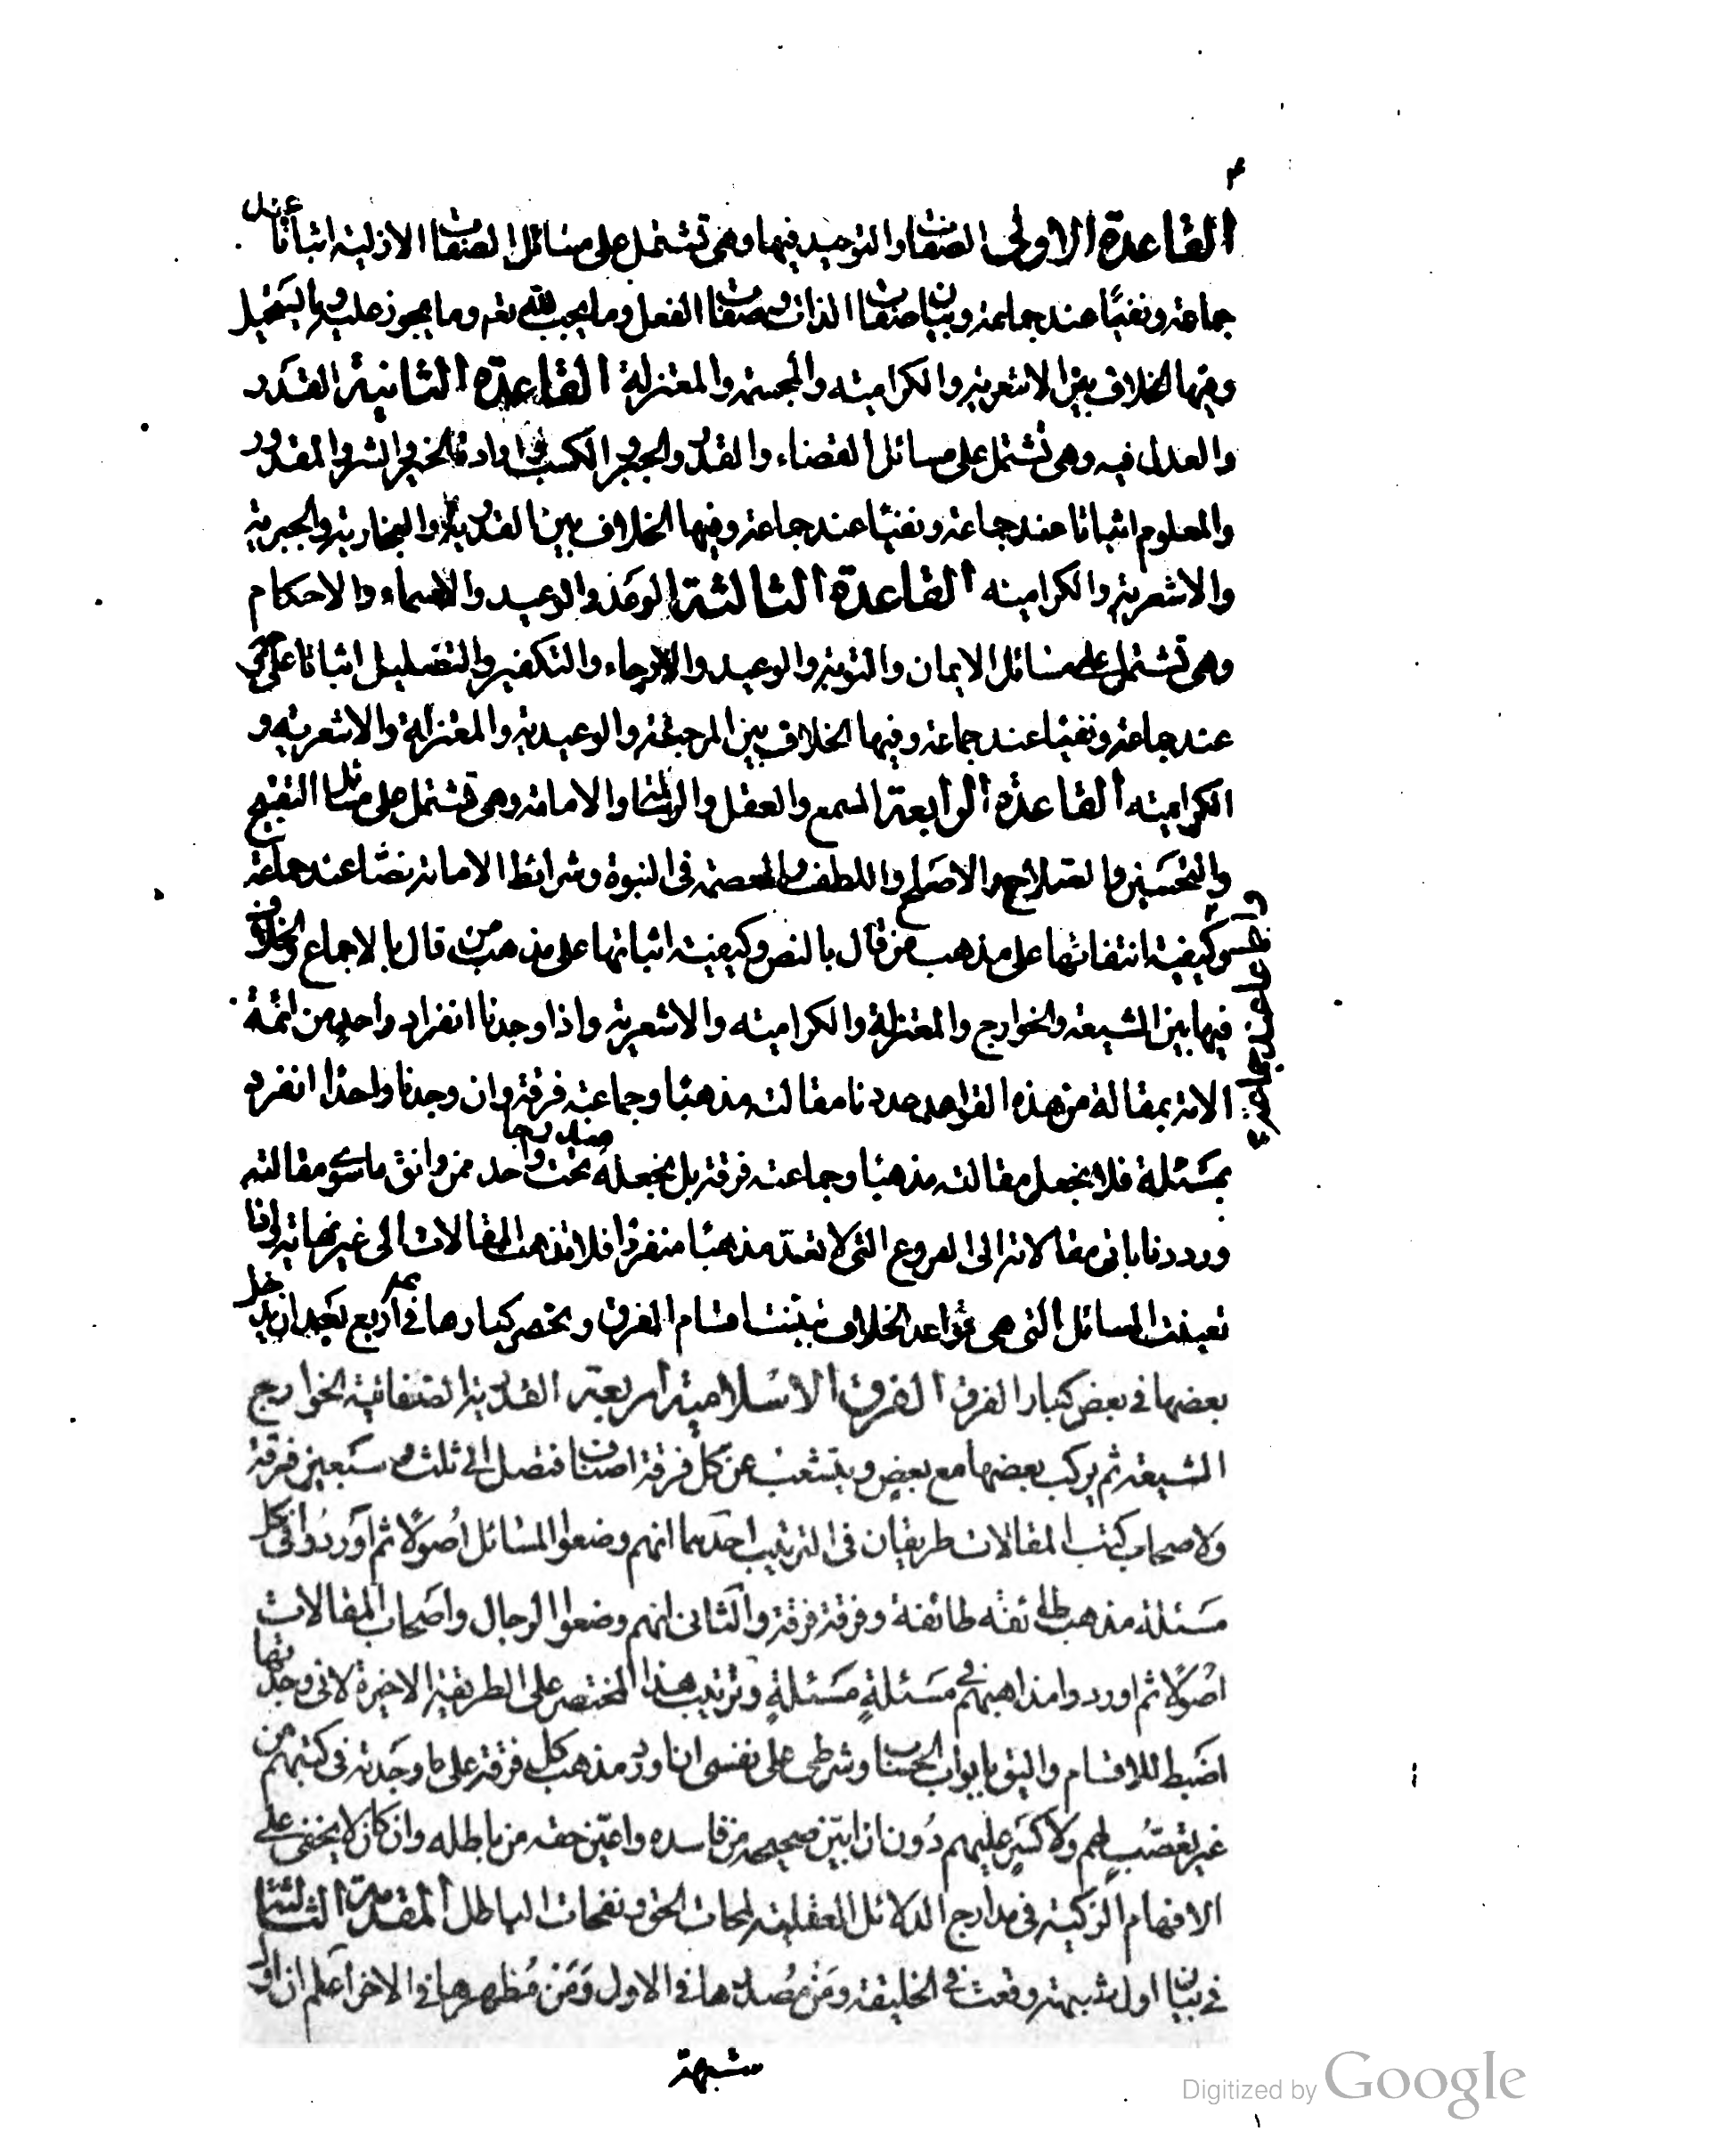 ٣
القاعدة الاولى الصفات والتوحيد فيها وهى تشتمل على مسائل الصفات الازلية اثباتا عند
جماعة ونفيًا عند جماعة وبيان صفات الذات وصفات الفعل وما يجب لله تعم وما يجوز عليه وما يستحيل
وفيها الخلاف بين الاشعرية والكرامية والمجسمة والمعتزلة القاعدة الثانية القدر
والعدل فيه وهى تشتمل على مسائل القضاء والقدر والجبر والكسب فى ارادة الخير والشر والمقدور
والمعلوم اثباتا عند جماعة ونفيًا عند جماعة وفيها الخلاف بين القدرية والنجارية والجبرية
والاشعرية والكرامية القاعدة الثالثة الوعد والوعيد والاسماء والاحكام
وهى تشتمل على مسائل الايمان والتوبة والوعيد والارجاء والتكفير والتضليل اثباتا على
عند جماعة ونفيًا عند جماعة وفيها الخلاف بين المرجئة والوعيدية والمعتزلة والاشعرية و
الكرامية القاعدة الرابعة السمع والعقل والرسالة والامامة وهى تشتمل على مسائل التقبيح
والتحسين والصلاح والاصلح واللطف والعصمة فى النبوة وشرائط الامامة نصًا عند جماعة
واجماعا عند جماعة
وكيفية انتقالها على مذهب من قال بالنص وكيفية اثباتها على مذهب من قال بالاجماع والخلاف
فيها بين الشيعة والخوارج والمعتزلة والكرامية والاشعرية واذا وجدنا انفراد واحد من ائمة
الامة بمقالة من هذه القواعد عددنا مقالته مذهبًا وجماعته فرقة وان وجدنا واحدًا انفرد
بمسئلة فلا نجعل مقالته مذهبًا وجماعته فرقة بل نجعله مندرجا تحت واحد ممن وافق ما سوى مقالته
ورددنا باقى مقالاته الى الفروع التى لا تعدّ مذهبًا منفردًا فلا تذهب المقالات الى غير نهاية واذا
تعينت المسائل التى هى قواعد الخلاف تبينت اقسام الفرق وتنحصر كبارها فى اربع بعد ان تداخل
بعضها فى بعض كبار الفرق الفرق الاسلامية اربعة القدرية الصفاتية الخوارج
الشيعة ثم يركب بعضها مع بعض ويتشعب عن كل فرقة اصناف فتصل الى ثلث وسبعين فرقة
ولاصحاب كتب المقالات طريقان فى الترتيب احدهما انهم وضعوا المسائل اصولًا ثم اوردوا فى كل
مسئلة مذهب طائفة طائفة وفرقة فرقة والثانى انهم وضعوا الرجال واصحاب المقالات
اصولًا ثم اوردوا مذاهبهم فى مسئلةٍ مسئلةٍ وترتيب هذا المختصر على الطريقة الاخيرة لانى وجدتها
اضبط للاقسام واليق بابواب الحساب وشرطى على نفسى ان اورد مذهب كل فرقة على ما وجدته فى كتبهم من
غير تعصّبٍ لهم ولا كسرٍ عليهم دُون ان ابيّن صحيحه من فاسده واعيّن حقه من باطله وان كان لا يخفى على
الافهام الزكية فى مدارج الدلائل العقلية لمحات الحق ونفحات الباطل المقدمة الثالثة
فى بيان اول شبهة وقعت فى الخليقة ومَن مُصدرها فى الاول ومَن مُظهرها فى الاخر اعلم ان اول
شبهة
Digitized by Google